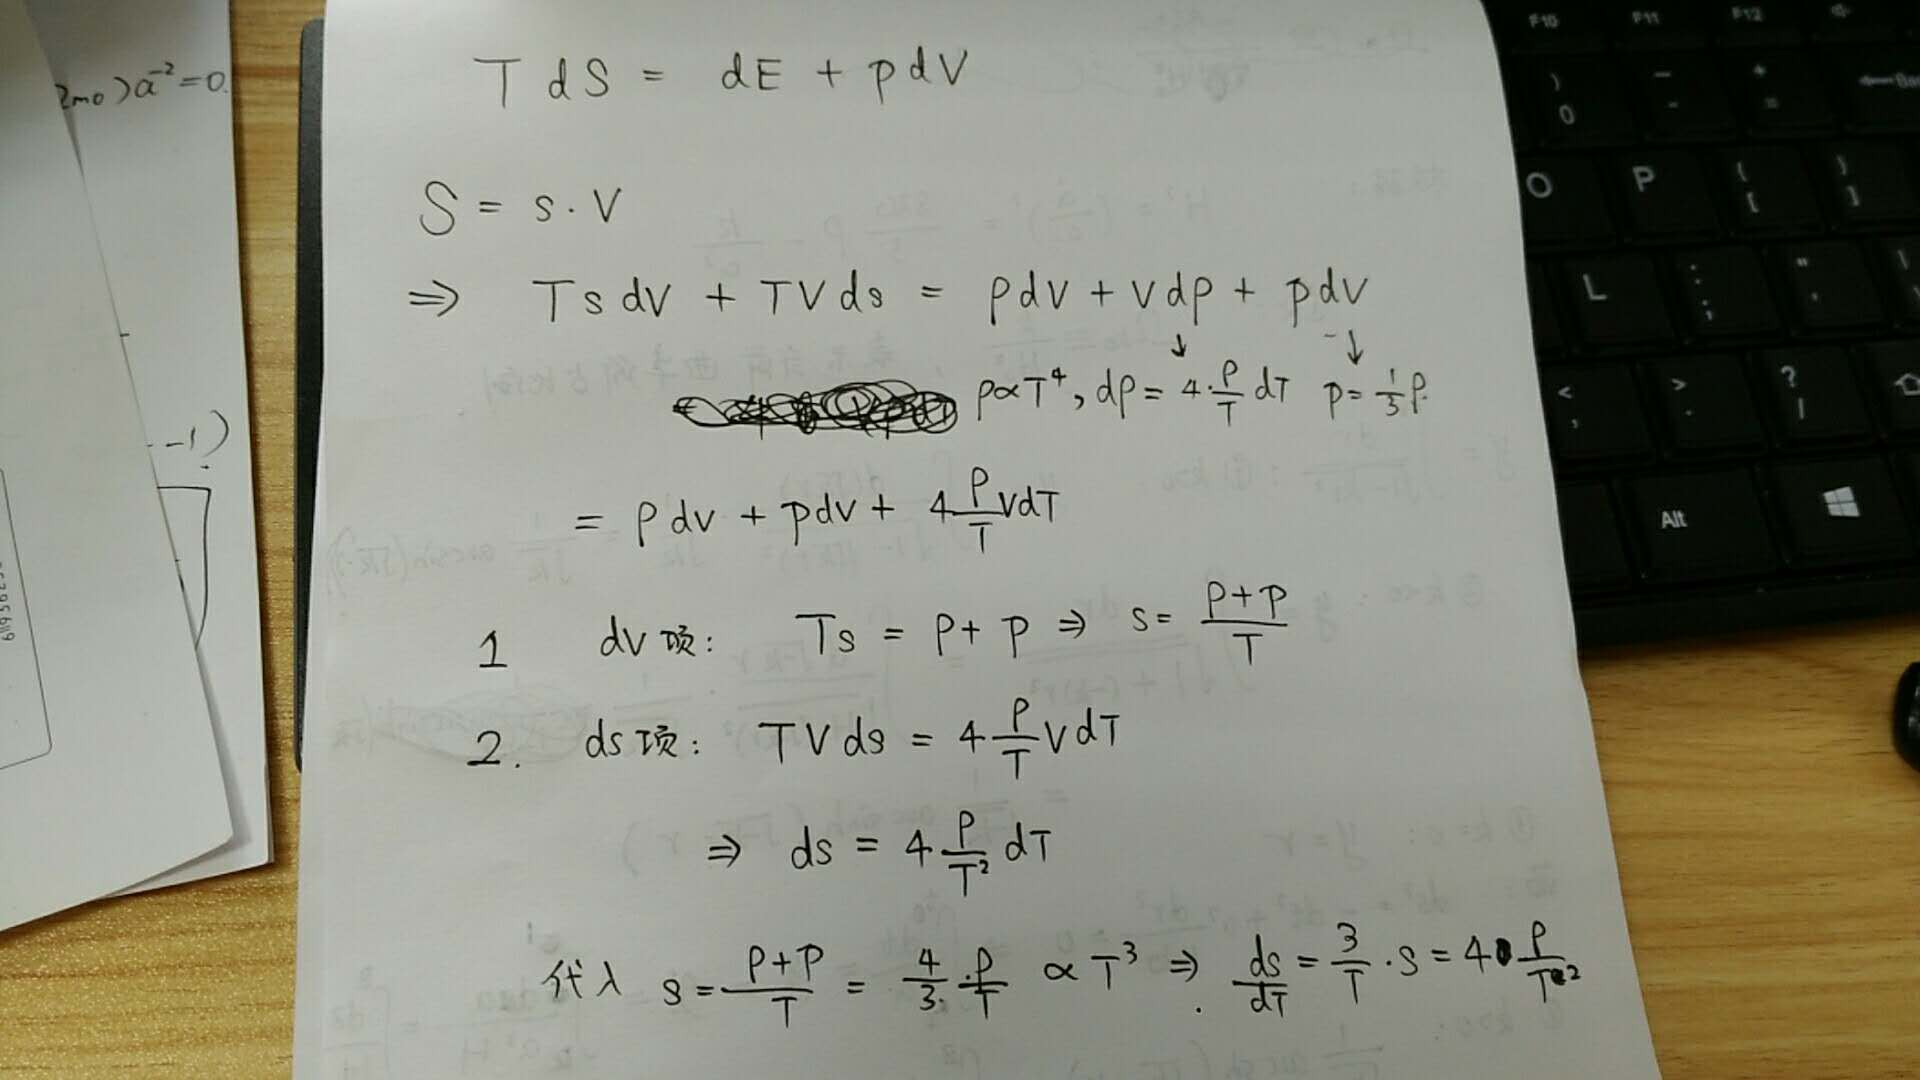 T dS = dE + pdV
S = s · V
⇒ T s dV + T V ds = ρdV + Vdρ + pdV
↓ ↓
ρ∝T⁴, dρ = 4·ρ/T dT p = 1/3 ρ.
= ρdV + pdV + 4 ρ/T VdT
1 dV项: Ts = ρ + p ⇒ s = (ρ+p)/T
2. ds项: T V ds = 4 ρ/T V dT
⇒ ds = 4 ρ/T² dT
代入 s = (ρ+p)/T = 4/3 · ρ/T ∝ T³ ⇒ ds/dT = 3/T · s = 4 ρ/T²
2m0)a⁻²=0.
--1)
F10
F11
F12
)
0
-
+
=
O
P
{
[
}
]
L
:
;
"
'
<
,
>
.
?
/
Alt